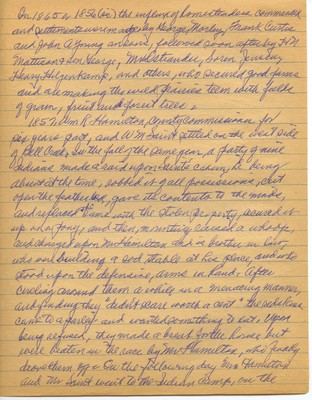 In 1865 or 1856 (sic) the influx of homesteaders commenced
and settlements were made by George Worley, Frank Curtis
and John A Young and sons, followed soon after by H N
Mattison & son George, Soren Jensby
Henry Hilgenkamp, and others, who secured good farms
and are making the wild prairies teem with fields
of grain, fruit and forest trees.
185 Wm R. Hamilton, County Commissioner for
six years past, and W M Saint settled on the East side
of Bell Creek. In the fall of the same year, a party of nine
Indians made a raid upon Saint's cabin, he being
absent at the time, robbed it of all possessions, cut
open the feather bed, gave its contents to the winds,
and replaced same with the stolen property, secured it
up on a pony, and then, mounting raised a whoop,
and charged upon Mr Hamilton and a brother in law,
who were building a sod stable at his place, and who
stood upon the defensive, arms in hand. After
circling around them a while in a menacing manner,
and finding they "didn't scare worth a cent" the redskins
came to a parley and wanted something to eat. Upon
being refused, they made a break for the house but
were beaten in the race by Mr Hamilton, who finally
drove them off. On the following day Mr Hamilton
and Mr Saint went to the Indian camp, on the